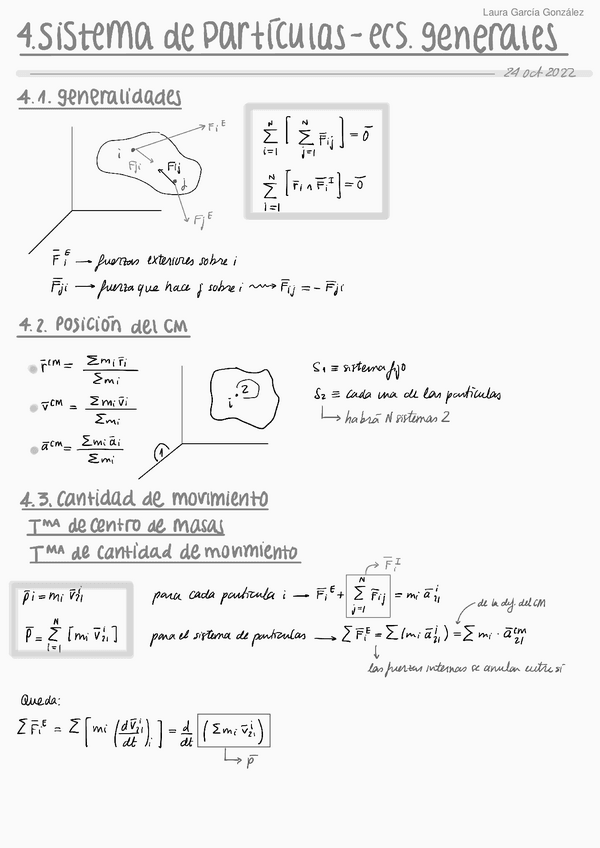 Laura García González
4. Sistema de Partículas - ecs. generales
24 oct 2022
4.1. generalidades
i
F̄ᵢᴱ
Fji
Fij
j
F̄jᴱ
∑_{i=1}^{N} [ ∑_{j=1}^{N} F̄ij ] = 0̄
∑_{i=1}^{N} [ r̄i ∧ F̄iᴵ ] = 0̄
F̄iᴱ → fuerzas exteriores sobre i
F̄ji → fuerza que hace j sobre i ⇝ F̄ij = - F̄ji
4.2. Posición del CM
r̄ᶜᴹ = ∑mi r̄i / ∑mi
v̄ᶜᴹ = ∑mi v̄i / ∑mi
āᶜᴹ = ∑mi āi / ∑mi
1
i
2
S₁ ≡ sistema fijo
S₂ ≡ cada una de las partículas
↳ habrá N sistemas 2
4.3. Cantidad de movimiento
Tᴹᴬ de centro de masas
Tᴹᴬ de cantidad de movimiento
p̄i = mi v̄₂₁ⁱ
P̄ = ∑_{i=1}^{N} [mi v̄₂₁ⁱ]
F̄iᴵ
para cada partícula i → F̄iᴱ + ∑_{j=1}^{N} F̄ij = mi ā₂₁ⁱ
de la def. del CM
para el sistema de partículas → ∑ F̄iᴱ = ∑(mi ā₂₁ⁱ) = ∑ mi · ā₂₁ᶜᵐ
las fuerzas internas se anulan entre sí
Queda:
∑ F̄iᴱ = ∑ [ mi (dv̄₂₁ⁱ/dt)ᵢ ] = d/dt (∑ mi v̄₂₁ⁱ)
↳ p̄